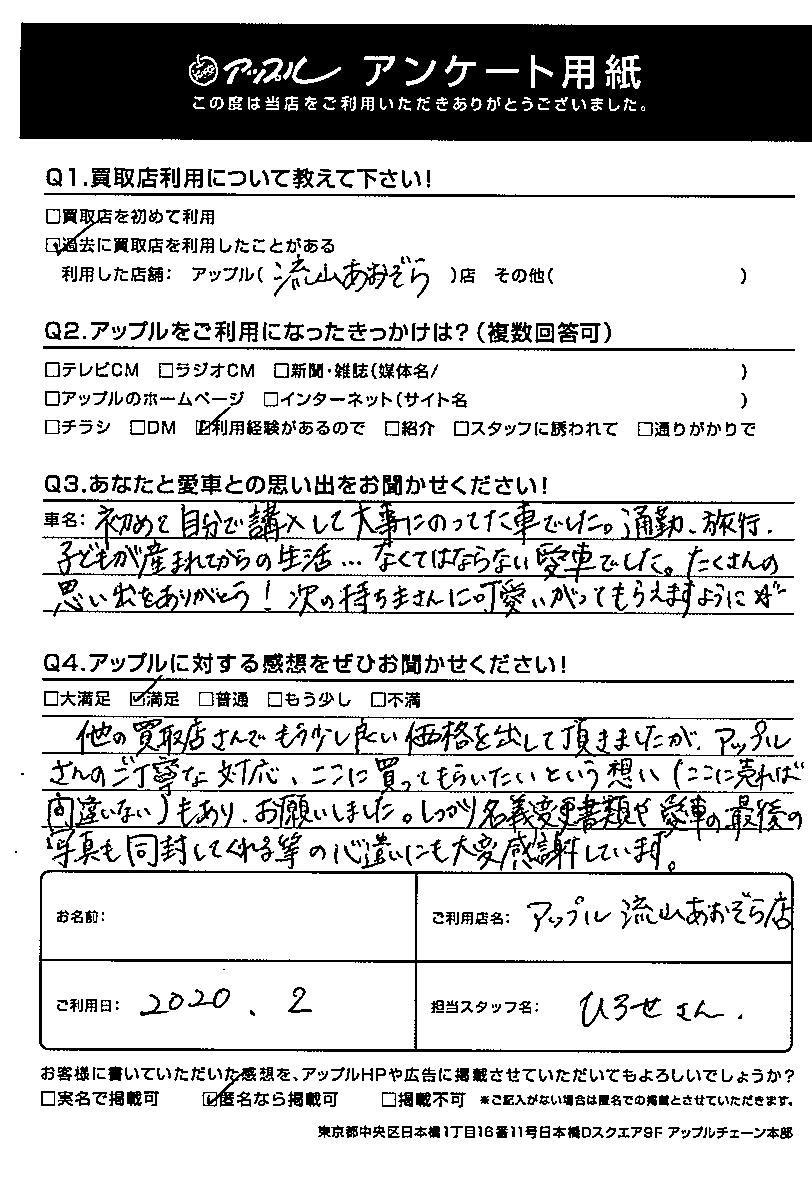 アップル アンケート用紙
この度は当店をご利用いただきありがとうございました。
Q1.買取店利用について教えて下さい!
□買取店を初めて利用
☑過去に買取店を利用したことがある
利用した店舗: アップル( 流山あおぞら )店 その他( )
Q2.アップルをご利用になったきっかけは?(複数回答可)
□テレビCM □ラジオCM □新聞・雑誌(媒体名/ )
□アップルのホームページ □インターネット(サイト名 )
□チラシ □DM ☑利用経験があるので □紹介 □スタッフに誘われて □通りがかりで
Q3.あなたと愛車との思い出をお聞かせください!
車名: 初めて自分で講入して大事にのってた車でした。通勤、旅行、
子どもが産まれてからの生活…なくてはならない愛車でした。たくさんの
思い出をありがとう!次の持ち主さんに可愛いがってもらえますように
Q4.アップルに対する感想をぜひお聞かせください!
□大満足 ☑満足 □普通 □もう少し □不満
他の買取店さんでもう少し良い価格を出して頂きましたが、アップル
さんのご丁寧な対応、ここに買ってもらいたいという想い(ここに売れば
間違いない)もあり、お願いしました。しっかり名義変更書類や愛車の最後の
写真も同封してくれる等の心遣いにも大変感謝しています。
お名前:
ご利用店名: アップル 流山あおぞら店
ご利用日: 2020.2
担当スタッフ名: ひろせさん.
お客様に書いていただいた感想を、アップルHPや広告に掲載させていただいてもよろしいでしょうか?
□実名で掲載可 ☑匿名なら掲載可 □掲載不可 ※ご記入がない場合は匿名での掲載とさせていただきます。
東京都中央区日本橋1丁目16番11号日本橋Dスクエア9F アップルチェーン本部